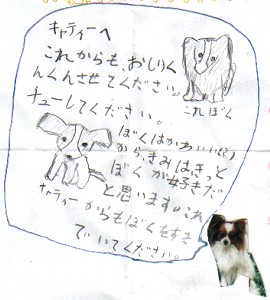 キャティーへ
これからも、おしりく
んくんさせてください。
これぼく
チューしてください。
ぼくはかわいい(?)
から、きみはきっと
ぼくが好きだ
と思います。これ
キャティーからもぼくをすき
でいてください。